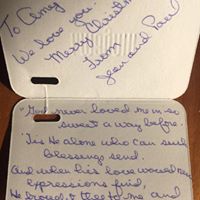 To Amey
We love you.
Merry Christmas
From
Jean and Paul
"God never loved me in so
sweet a way before.
'Tis He alone who can such
blessings send.
And when his love would new
expressions find,
He brought thee to me and